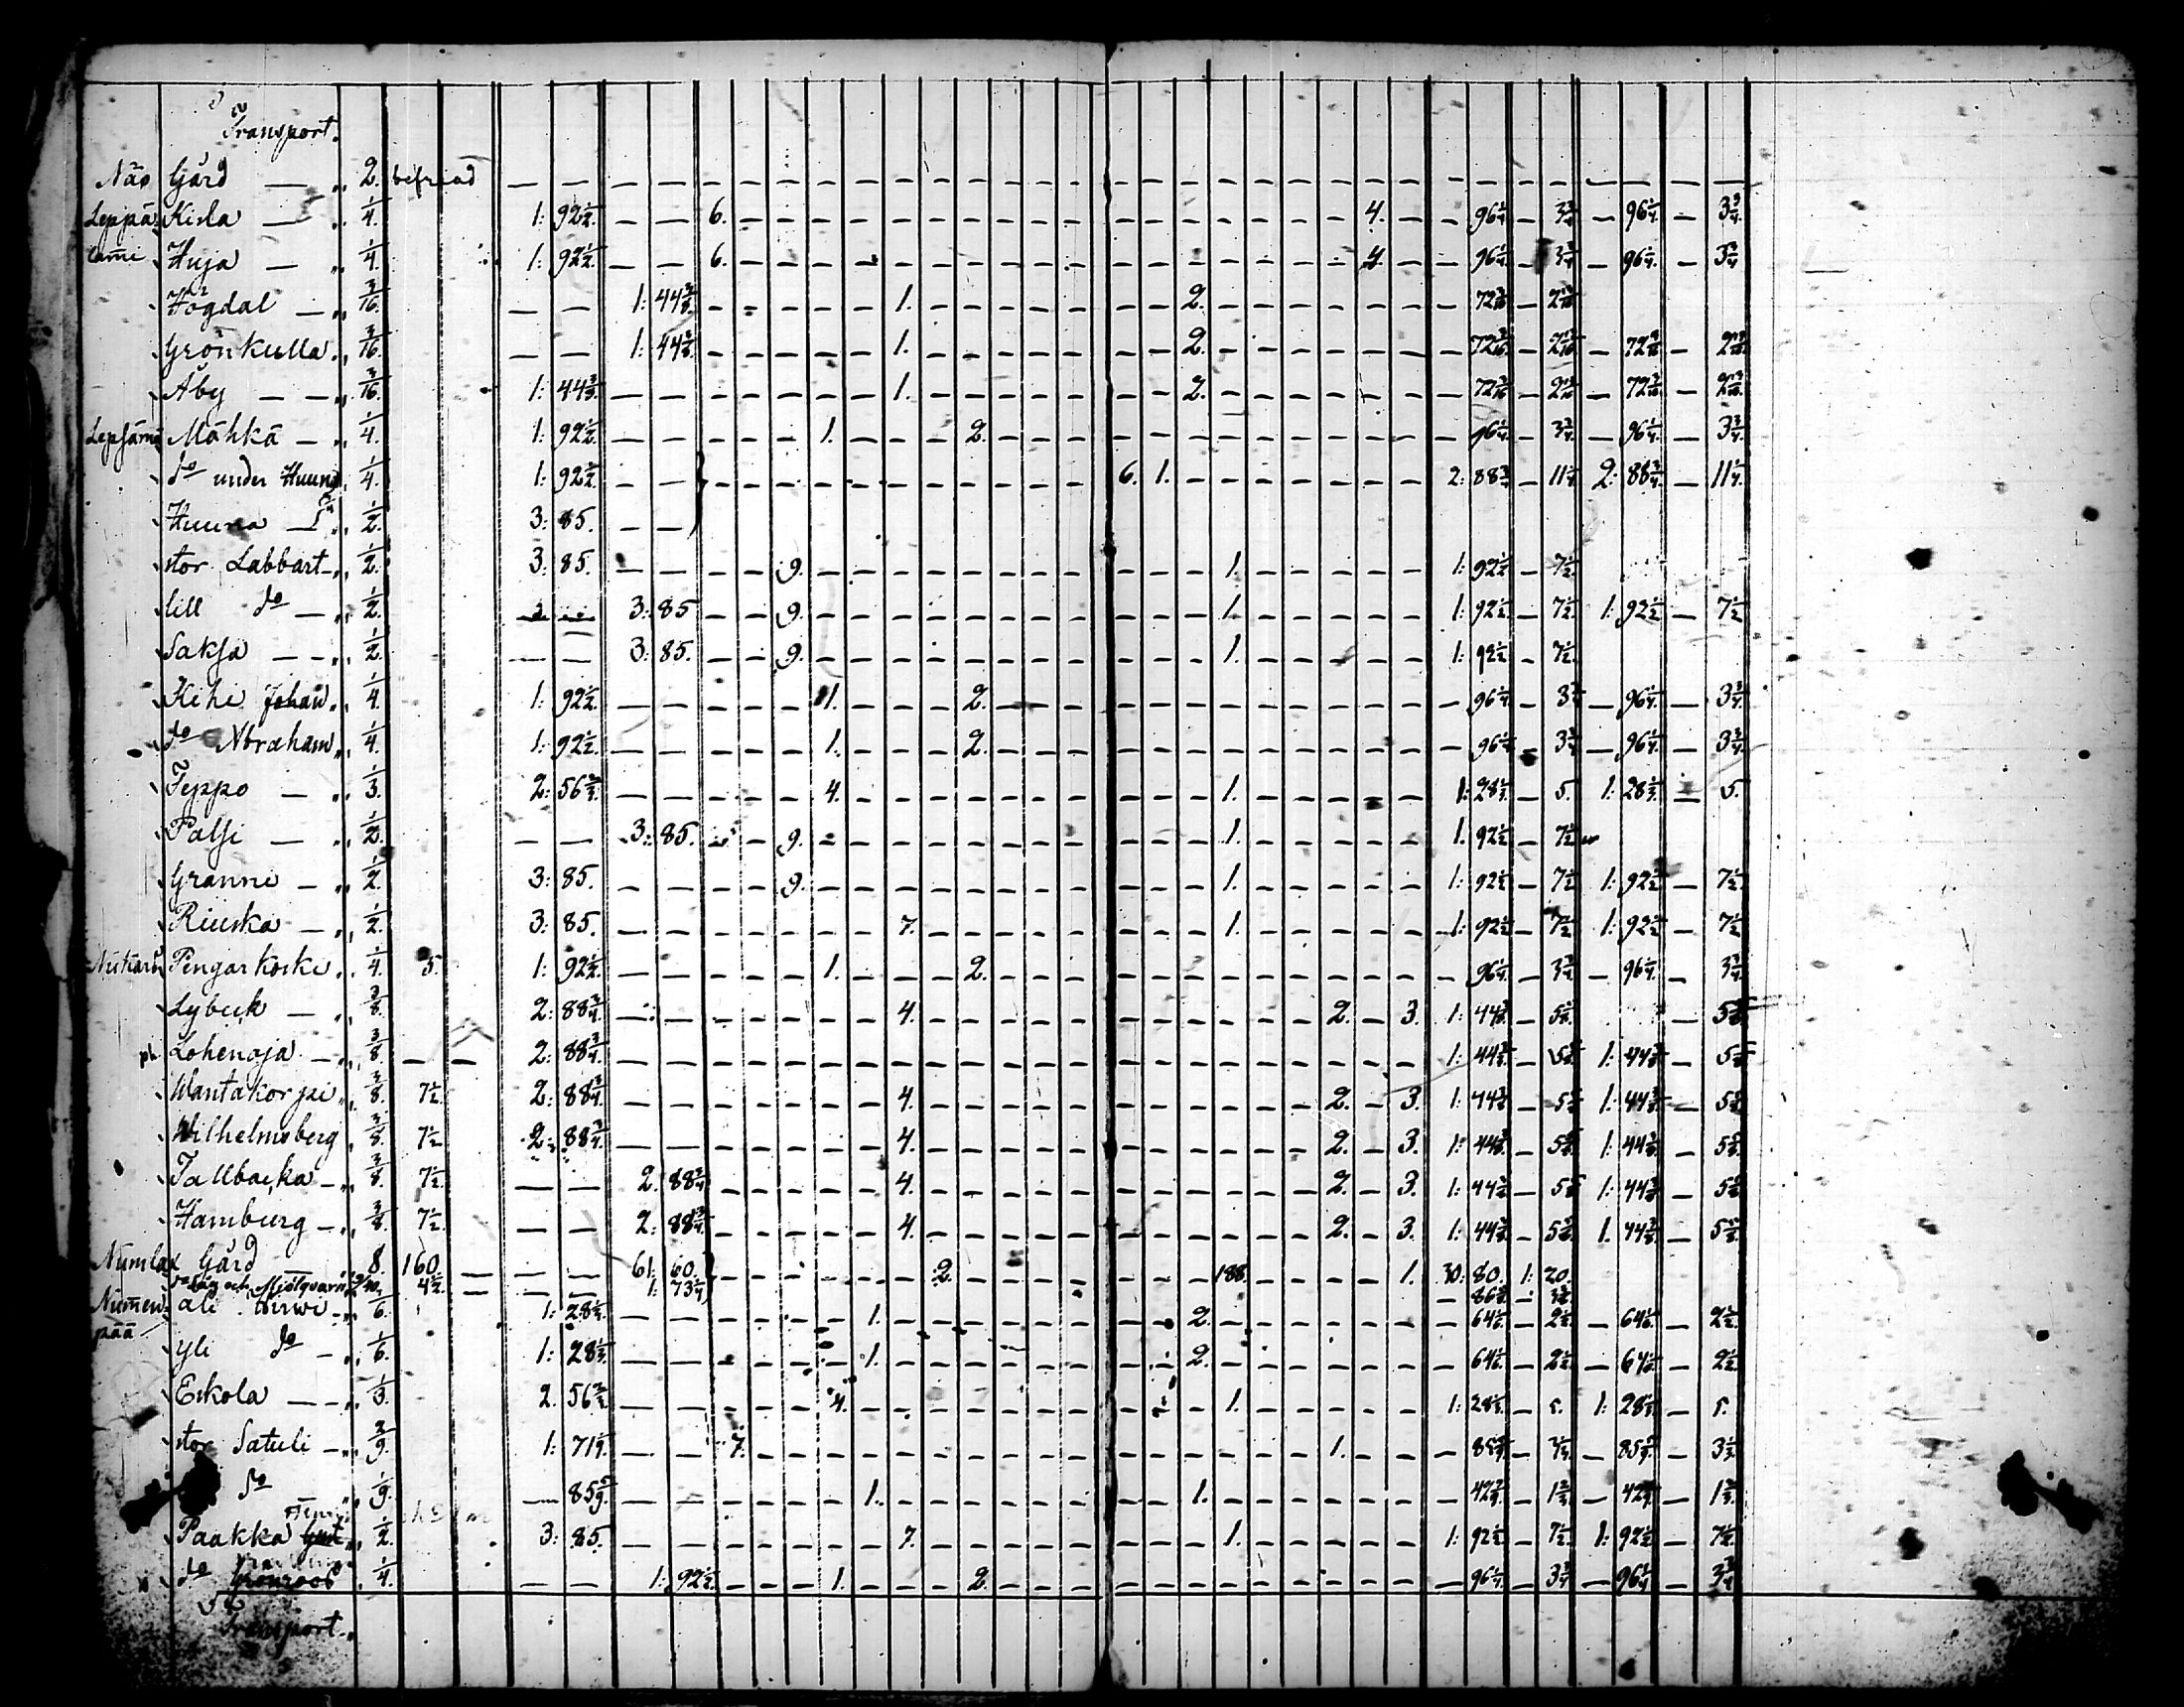 Transport.
Näs Gård — „ 2. befriad — — — — — — — — — — — — — — — — — — — — — — — — — — — —
Leppä Kisla — „ 1/4. 1: 92 1/2. — — 6. — — — — 4. — — 96 1/4. — 3 3/4. — 96 1/4. — 3 3/4.
lam̄i Huja — „ 1/4. 1: 92 1/2. — — 6. — — — — 4. — — 96 1/4. — 3 3/4 — 96 1/4. — 3 3/4
Högdal — „ 3/16. — — 1: 44 3/8. — — 1. — — 2. — — 72 3/16 — 2 13/16
Grönkulla „ 3/16. — — 1: 44 3/8. — — 1. — — 2. — — 72 3/16. — 2 13/16 — 72 3/16 — 2 13/16.
Åby — — „ 3/16. 1: 44 3/8. — — 1. — — 2. — — 72 3/16 — 2 13/16 — 72 3/16. — 2 13/16.
Lepsämä Mähkä — „ 1/4. 1: 92 1/2. — — 1. — — 2. — — 96 1/4. — 3 3/4. — 96 1/4. — 3 3/4.
do under Huuna „ 1/4. 1: 92 1/2. — — 6. 1. — — 2: 88 3/4. — 11 1/4. 2: 88 3/4. — 11 1/4.
Huuna — „ 1/2. 3: 85. — —
stor Labbart — „ 1/2. 3: 85. — — 9. — — 1. — — 1: 92 1/2 — 7 1/2.
lill do — „ 1/2. — — 3: 85 — — 9. — — 1. — — 1: 92 1/2 — 7 1/2. 1: 92 1/2 — 7 1/2
Saksa — — „ 1/2. — — 3: 85. — — 9. — — 1. — — 1: 92 1/2 — 7 1/2.
Kihi Johan „ 1/4. 1: 92 1/2. — — 1. — — 2. — — 96 1/4 — 3 3/4 — 96 1/4. — 3 3/4.
do Abraham „ 1/4. 1: 92 1/2. — — 1. — — 2. — — 96 1/4 — 3 3/4 — 96 1/4. — 3 3/4.
Teppo — „ 1/3. 2: 56 2/3. — — 4. — — 1. — — 1: 28 1/3. — 5. 1: 28 1/3. — 5.
Palsi — „ 1/2. — — 3: 85. — — 9. — — 1. — — 1. 92 1/2 — 7 1/2
Granni — „ 1/2. 3: 85. — — 9. — — 1. — — 1: 92 1/2 — 7 1/2 1: 92 1/2 — 7 1/2.
Ruuska — „ 1/2. 3: 85. — — 7. — — 1. — — 1: 92 1/2 — 7 1/2 1: 92 1/2 — 7 1/2.
Pengarkoski „ 1/4. 5. 1: 92 1/2. — — 1. — — 2. — — 96 1/4. — 3 3/4. — 96 1/4. — 3 3/4.
Lybeck — „ 3/8. 2: 88 3/4. — — 4. — — 2. — 3. 1: 44 3/8. — 5 5/8. — 5 5/8.
Lohenoja — „ 3/8. — — 2: 88 3/4. — — 1: 44 3/8. — 5 5/8 1: 44 3/8 — 5 5/8
Wantakorpi „ 3/8. 7 1/2. 2: 88 3/4. — — 4. — — 2. — 3. 1: 44 3/8 — 5 5/8 1: 44 3/8 — 5 5/8.
Wilhelmsberg „ 3/8. 7 1/2. 2: 88 3/4. — — 4. — — 2. — 3. 1: 44 3/8 — 5 5/8. 1: 44 3/8 — 5 5/8.
Tallbacka — „ 3/8. 7 1/2. — — 2. 88 3/4 — — 4. — — 2. — 3. 1: 44 3/8 — 5 5/8 1: 44 3/8 — 5 5/8
Hamburg — „ 3/8. 7 1/2. — — 2: 88 3/4. — — 4. — — 2. — 3. 1: 44 3/8. — 5 5/8. 1. 44 3/8. — 5 5/8.
Numlax Gård — „ 8. 160. — — — 61: 60. — — 2. — — 188. — — 1. 30: 80. 1: 20.
do såg och Mjölqvarn 4 1/2. — — 1: 73 1/4 — 86 5/8. — 3 3/8
Num̄en ali „ 1/6. 1: 28 1/3. — — 1. — — 2. — — 64 1/6. — 2 1/2. — 64 1/6. — 2 1/2.
pää
yli do — „ 1/6. 1: 28 1/3. — — 1. — — 2. — — 64 1/6. — 2 1/2. — 64 1/6 — 2 1/2.
Eskola — — „ 1/3. 2. 56 2/3. — — 4. — — 1. — — 1: 28 1/3. — 5. 1: 28 1/3. — 5.
stor Satuli — „ 2/9. 1: 71 1/9. — — 7. — — 1. — — 85 5/9 — 3 1/3 — 85 5/9. — 3 1/3.
do „ 1/9. — 85 5/9. — — 1. — — 1. — — 42 7/9 — 1 2/3 — 42 7/9. — 1 2/3.
Paakka „ 1/2. 3: 85. — — 7. — — 1. — — 1: 92 1/2 — 7 1/2. 1: 92 1/2 — 7 1/2.
do Grönroos „ 1/4. — — 1: 92 1/2. — — 1. — — 2. — — 96 1/4. — 3 3/4 — 96 1/4 — 3 3/4
Transport „